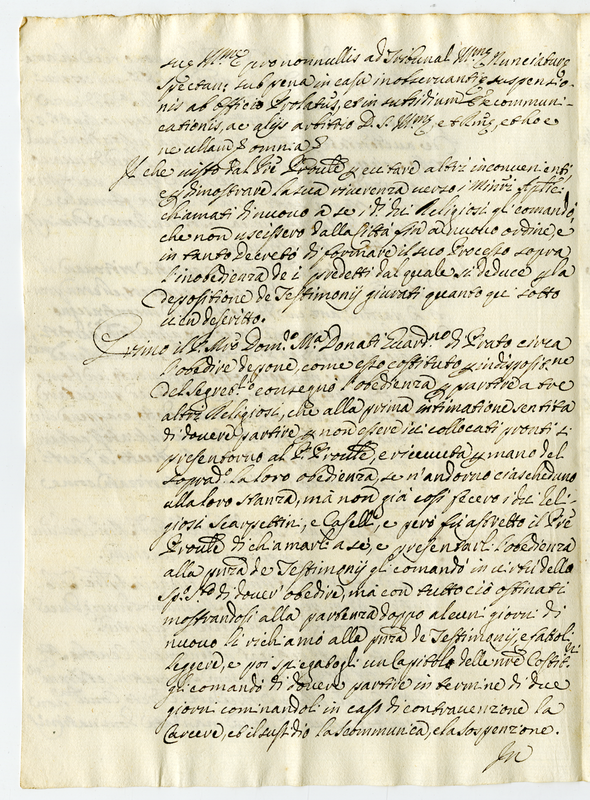 suę Illmę pro nonnullis ad Tribunal Illmę Nunciaturę
Spectan: sub pena in casu inobservantię suspensio-
nis ab officio Prolatus, et in subsidium Excommuni-
cationis, ac alijs arbitrio D. S. Illmę, et Rmę, et hoc
ne ullam omnia
Il che visto dal Pre Proule p evitare altri inconvenienti,
e p dimostrare la sua riverenza verso i Minri Aplici
chiamati di nuovo à se i d. dui Religiosi gli comandò,
che non uscissero dalla Città fin à nuovo ordine, e
in tanto decretò di formare il suo Processo sopra
l'inobedienza de i predetti dal quale si deduce p la
depositione de Testimonij giurati quanto qui sotto
vien descritto.
Primo il P. Mro Dom.co Ma Donati Guard.no di Prato circa
l'obedire depone, come esso costituto p indispositne
del Segreto consegnò l'obedienza p partire a tre
altri Religiosi, che alla prima intimatione sentita
di dovere partire p non essere ivi collocati pronti si
presentorno al P. Proule, e ricevuta p mano del
soprad.o la loro obedienza, se n'andorno ciascheduno
alla loro stanza, mà non già così fecero i dui Reli-
giosi Scarsettini, e Caselli, e però fù astretto il Pre
Proule di chiamarli a sè, e presentarli l'obedienza
alla prza de Testimonij gli comandò in virtù dello
Sp.s S.to di dover obedire, mà con tutto ciò ostinati
mostrandosi alla partenza doppo alcuni giorni di
nuovo li richiamò alla prza de Testimonij, e fattoli
leggere, e poi spiegatogli un Capitolo delle nre Costit.ni
gli comandò di dovere partire in termine di due
giorni cominandoli in caso di contravenzione la
Carcere, et il susidio la scommunica, e la sospenzione.
In